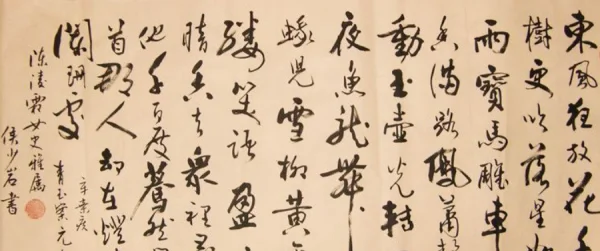 東風狂放花千
樹更吹落星如
雨寶馬雕車
香滿路鳳蕭
動玉壺光轉
夜魚龍舞
蛾兒雪柳黃
縷笑語盈
暗香去眾裡尋
他千百度驀然
首那人却在燈
闌珊處
辛棄疾
青玉案元
陈凌霜女史雅屬
侯少若書